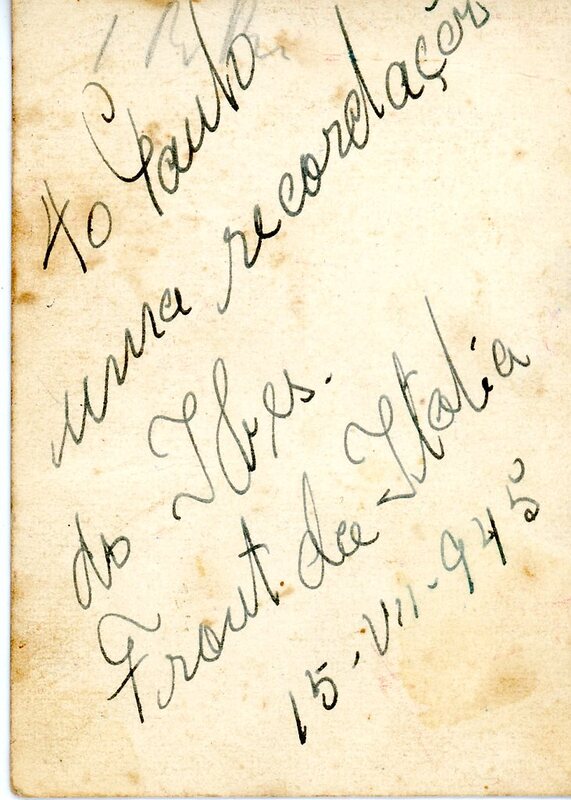 Ao Paulo
uma recordação
do Ibes.
Front da Italia
15-VII-945